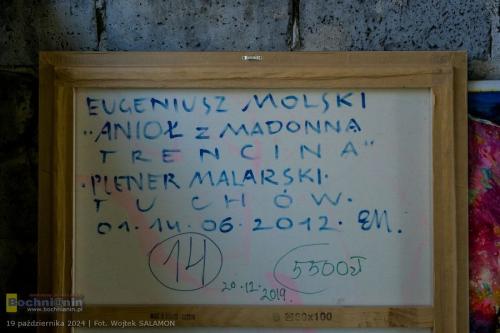 EUGENIUSZ MOLSKI
„ANIOŁ Z MADONNĄ
TRENCINA"
·PLENER MALARSKI·
TUCHÓW·
01.14.06.2012. EM.
14
5500zł
20.12.2019.
80x100
Bochnianin
bochnianin.pl
19 października 2024 | Fot. Wojtek SALAMON